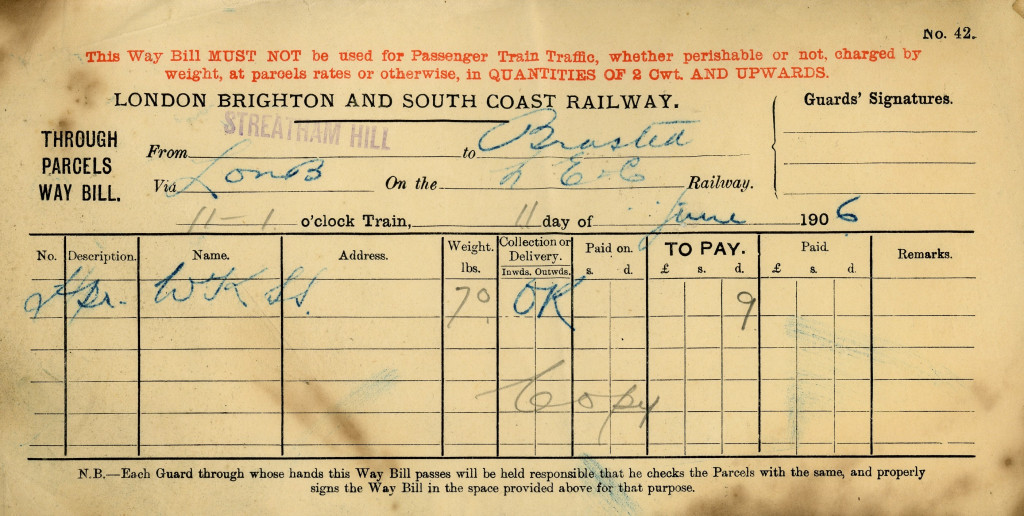 No. 42.
This Way Bill MUST NOT be used for Passenger Train Traffic, whether perishable or not, charged by
weight, at parcels rates or otherwise, in QUANTITIES OF 2 Cwt. AND UPWARDS.
LONDON BRIGHTON AND SOUTH COAST RAILWAY.
Guards' Signatures.
THROUGH
PARCELS
WAY BILL.
STREATHAM HILL
From to Brasted
Via Lon B On the L E & C Railway.
11-1 o'clock Train, 11 day of June 1906
No. Description. Name. Address. Weight. lbs. Collection or Delivery. Inwds. Outwds. Paid on. s. d. TO PAY. £ s. d. Paid. £ s. d. Remarks.
WK 70 OK 9
Copy
N.B.—Each Guard through whose hands this Way Bill passes will be held responsible that he checks the Parcels with the same, and properly
signs the Way Bill in the space provided above for that purpose.